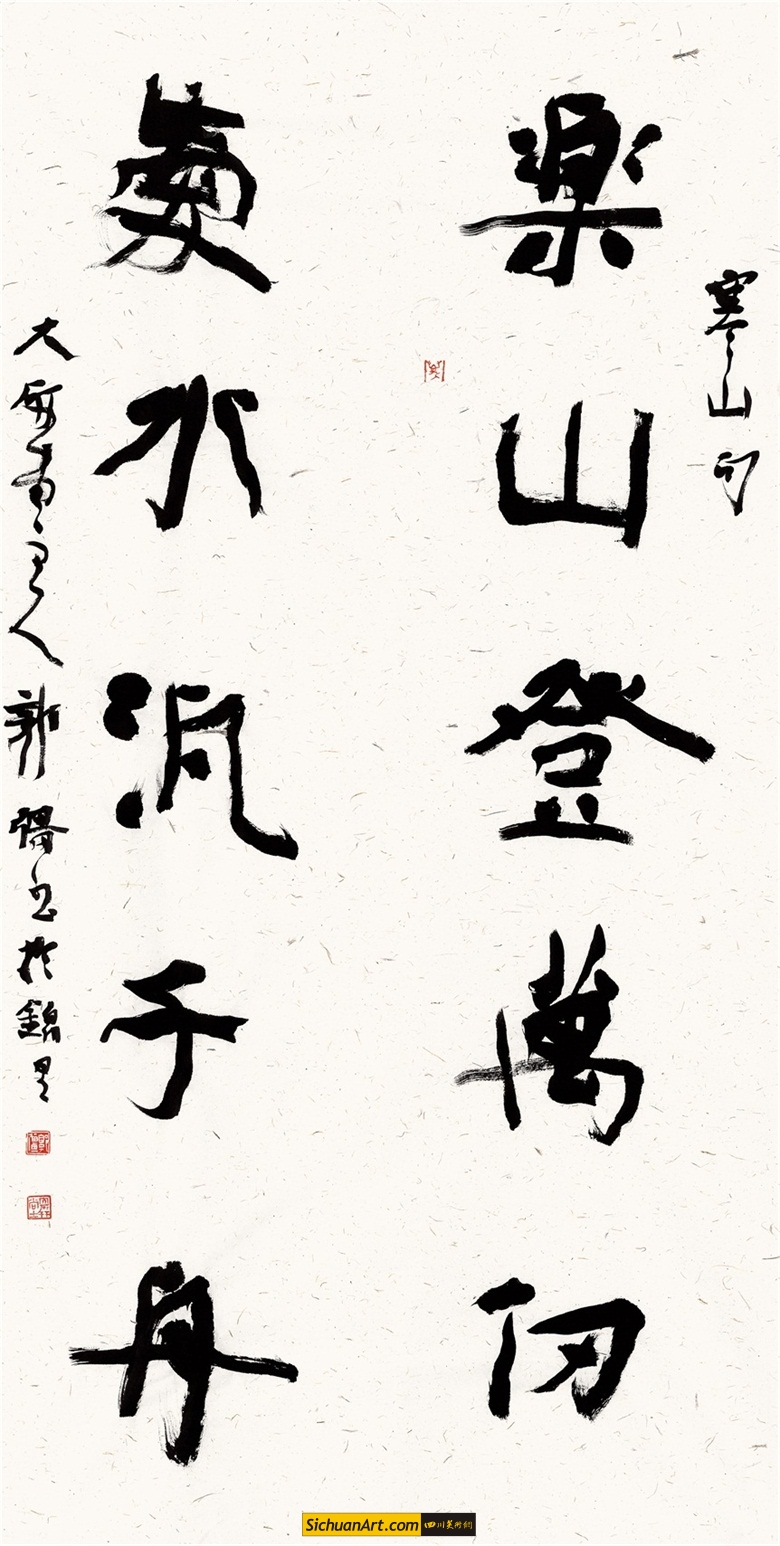 寒山句
樂山登萬仞
愛水汎千舟
大 人郭 書於錦里
SichuanArt.com 四川美術網